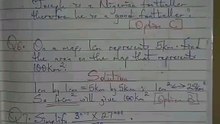 Joseph is a Nigerian footballer
therefore he is a good footballer"
[Option C]
Q6: On a map, 1cm represents 5km. Find
the area on the map that represents
100km².
Solution
1cm by 1cm = 5km by 5km ⇒ 1cm² ⇔ 25km²
So 4cm² will give 100km² [Option B]
Q7: Simplify